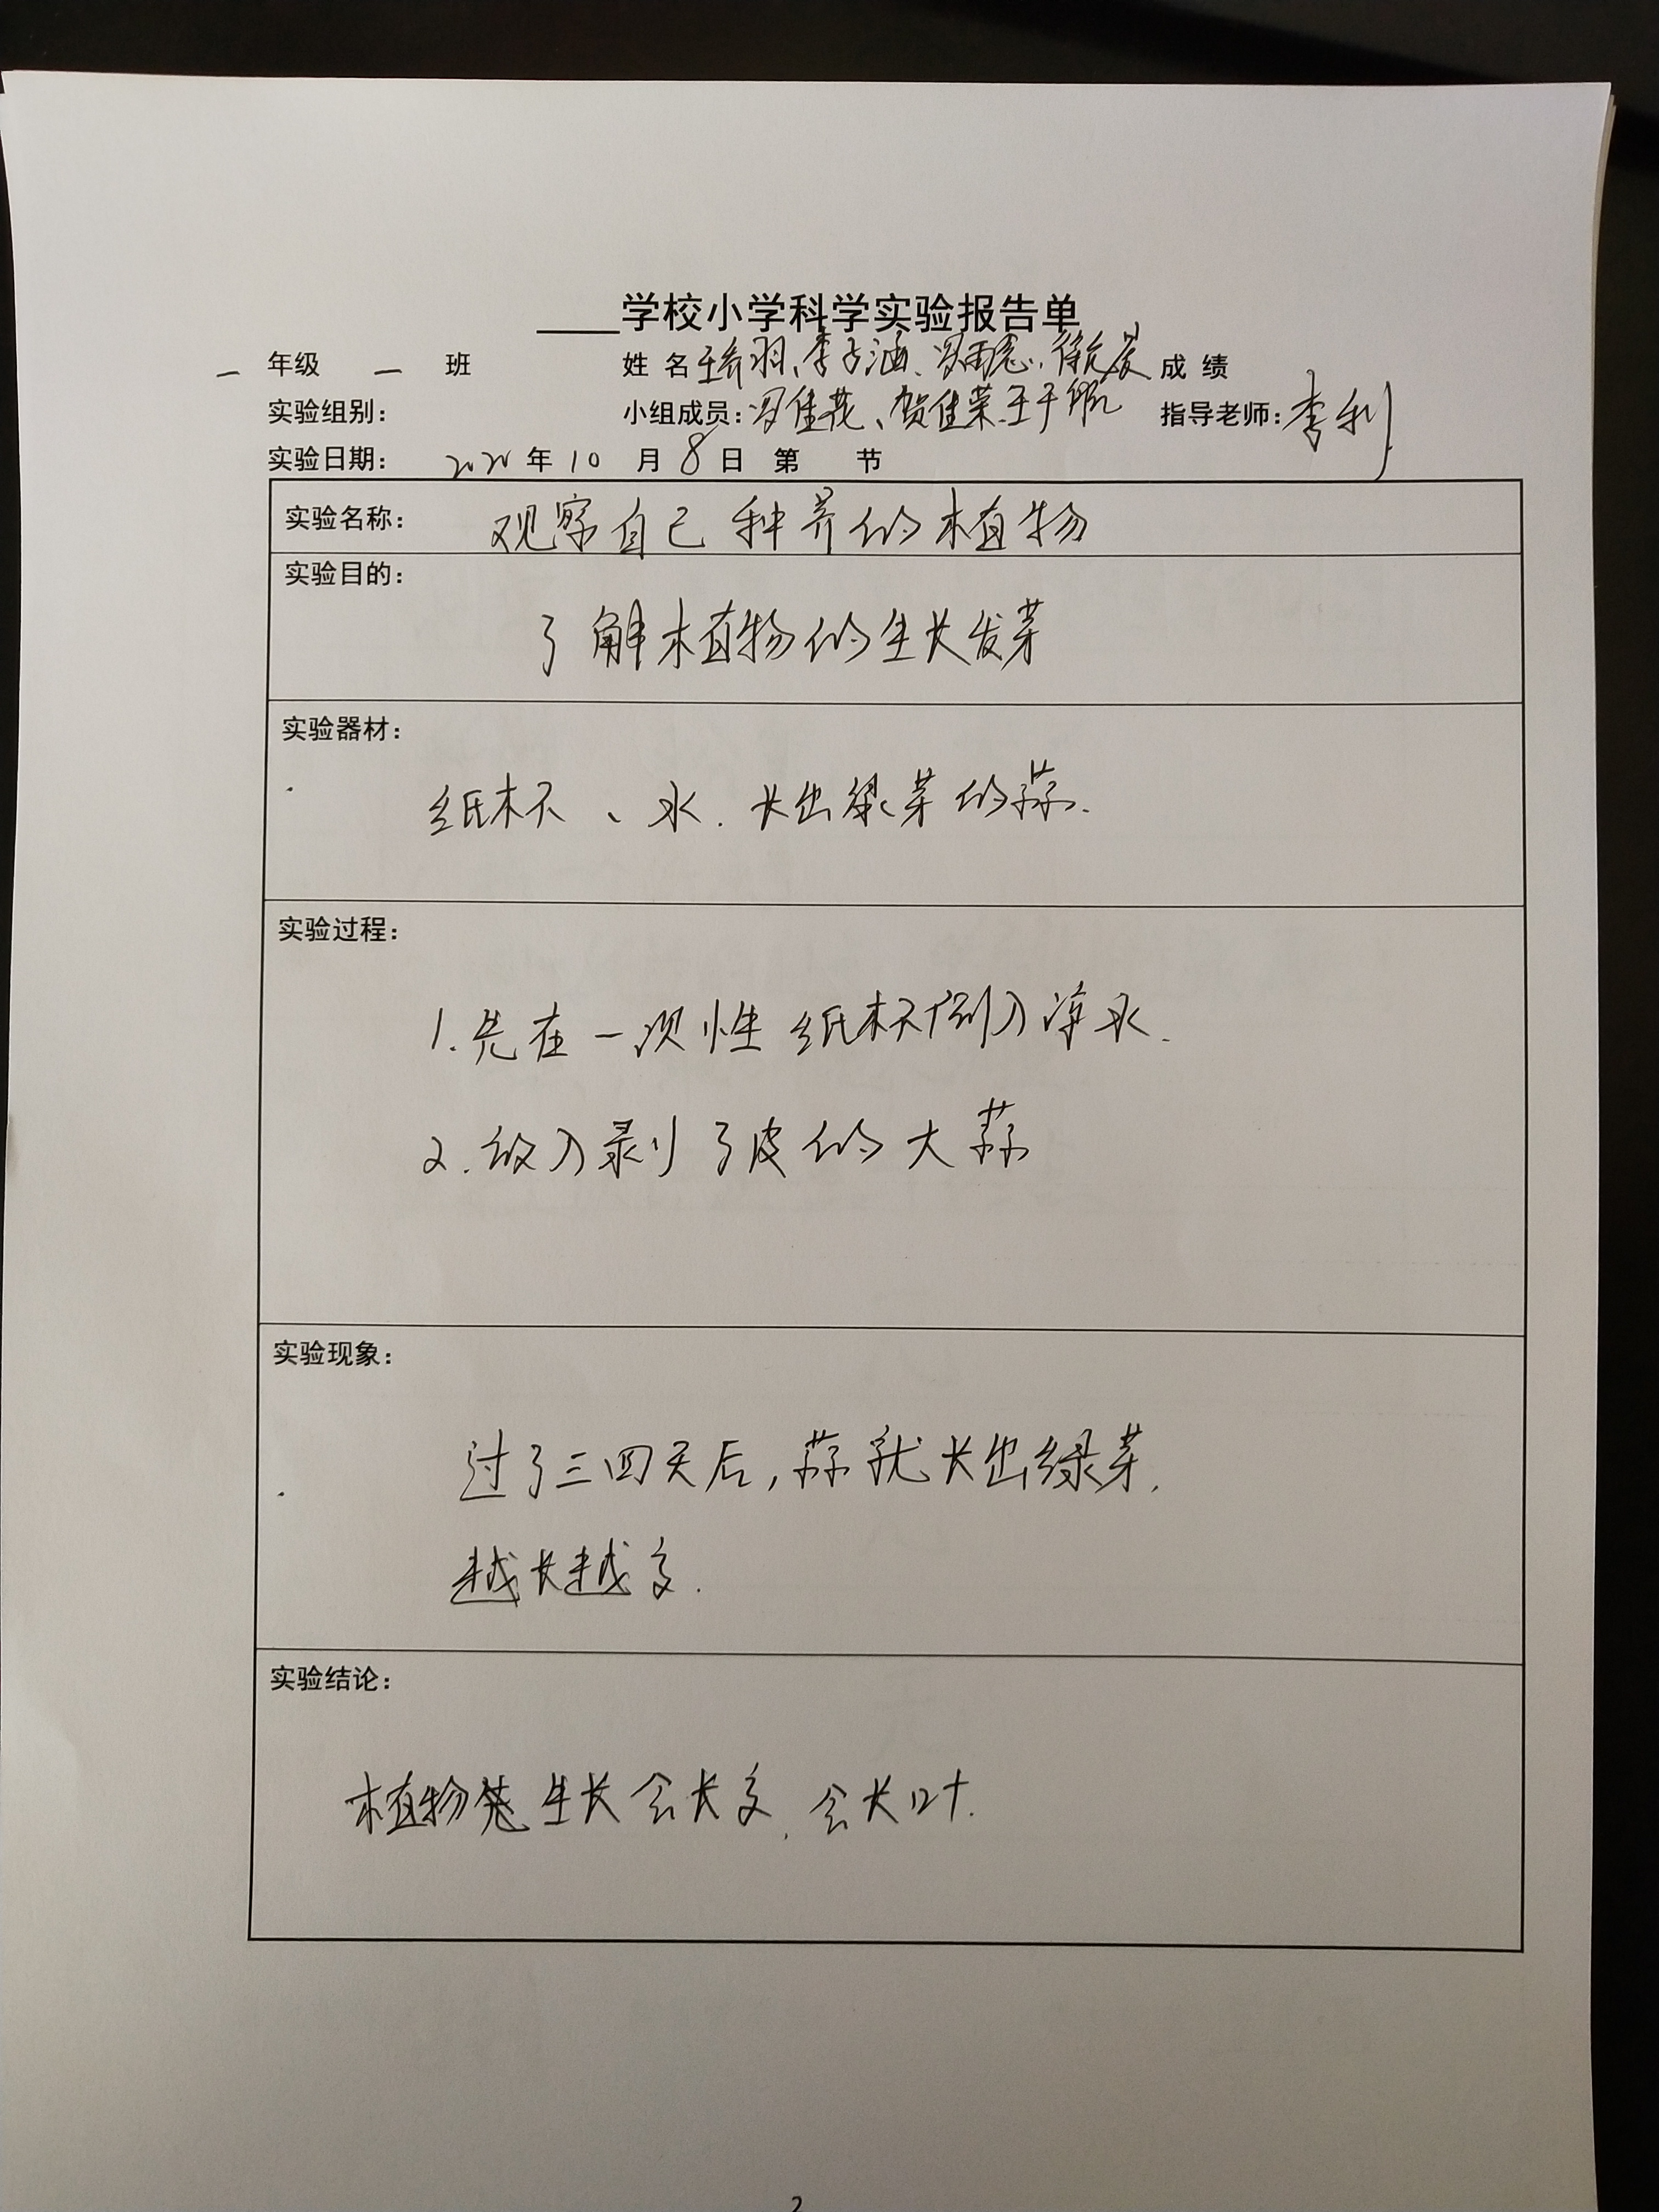 ____学校小学科学实验报告单
一 年级 一 班 姓 名 李子涵、冯雨 成 绩
实验组别： 小组成员：冯佳花、贺佳荣、王子 指导老师：李利
实验日期： 2020 年 10 月 8 日 第 节
实验名称： 观察自己种养的植物
实验目的：
了解植物的生长发芽
实验器材：
纸杯、水.长出绿芽的蒜.
实验过程：
1.先在一次性纸杯倒入净水.
2.放入剥了皮的大蒜
实验现象：
过了三四天后,蒜就长出绿芽.
越长越高.
实验结论：
植物 生长会长高.会长叶.
2